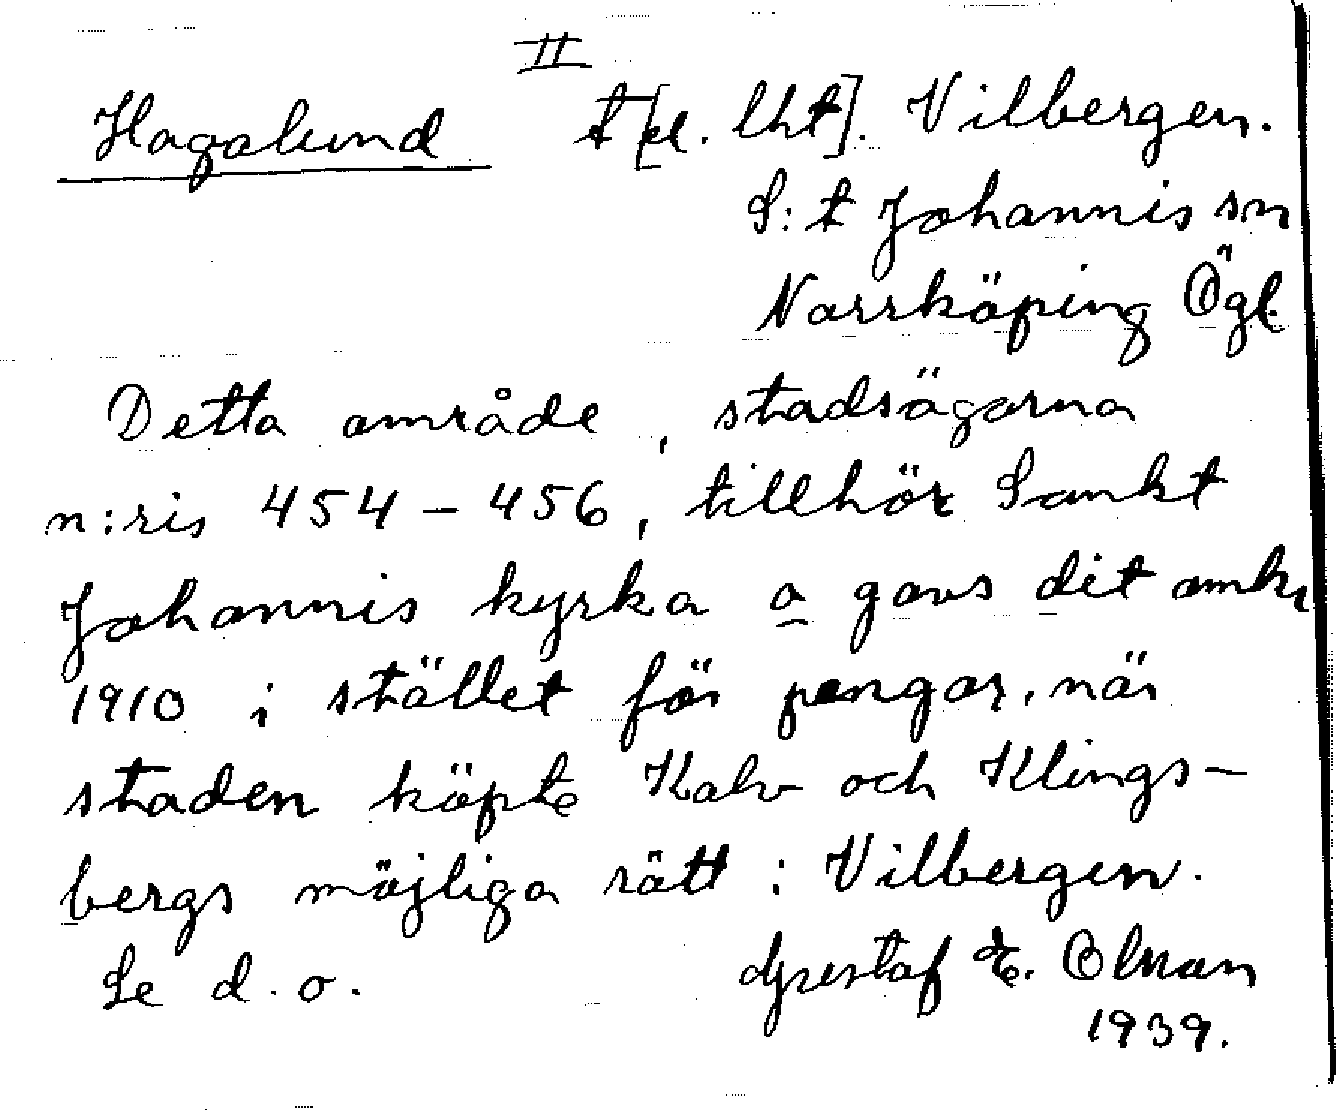 II
Hagalund t [el. lht]. Vilbergen.
S:t Johannis sn
Norrköping Ögl.
Detta område, stadsägorna
n:ris 454 – 456, tillhör Sankt
Johannis kyrka o gavs dit omkr
1910 i stället för pengar, när
staden köpte Kalv och Klings-
bergs möjliga rätt i Vilbergen.
Se d. o. Gustaf E. Olman
1939.